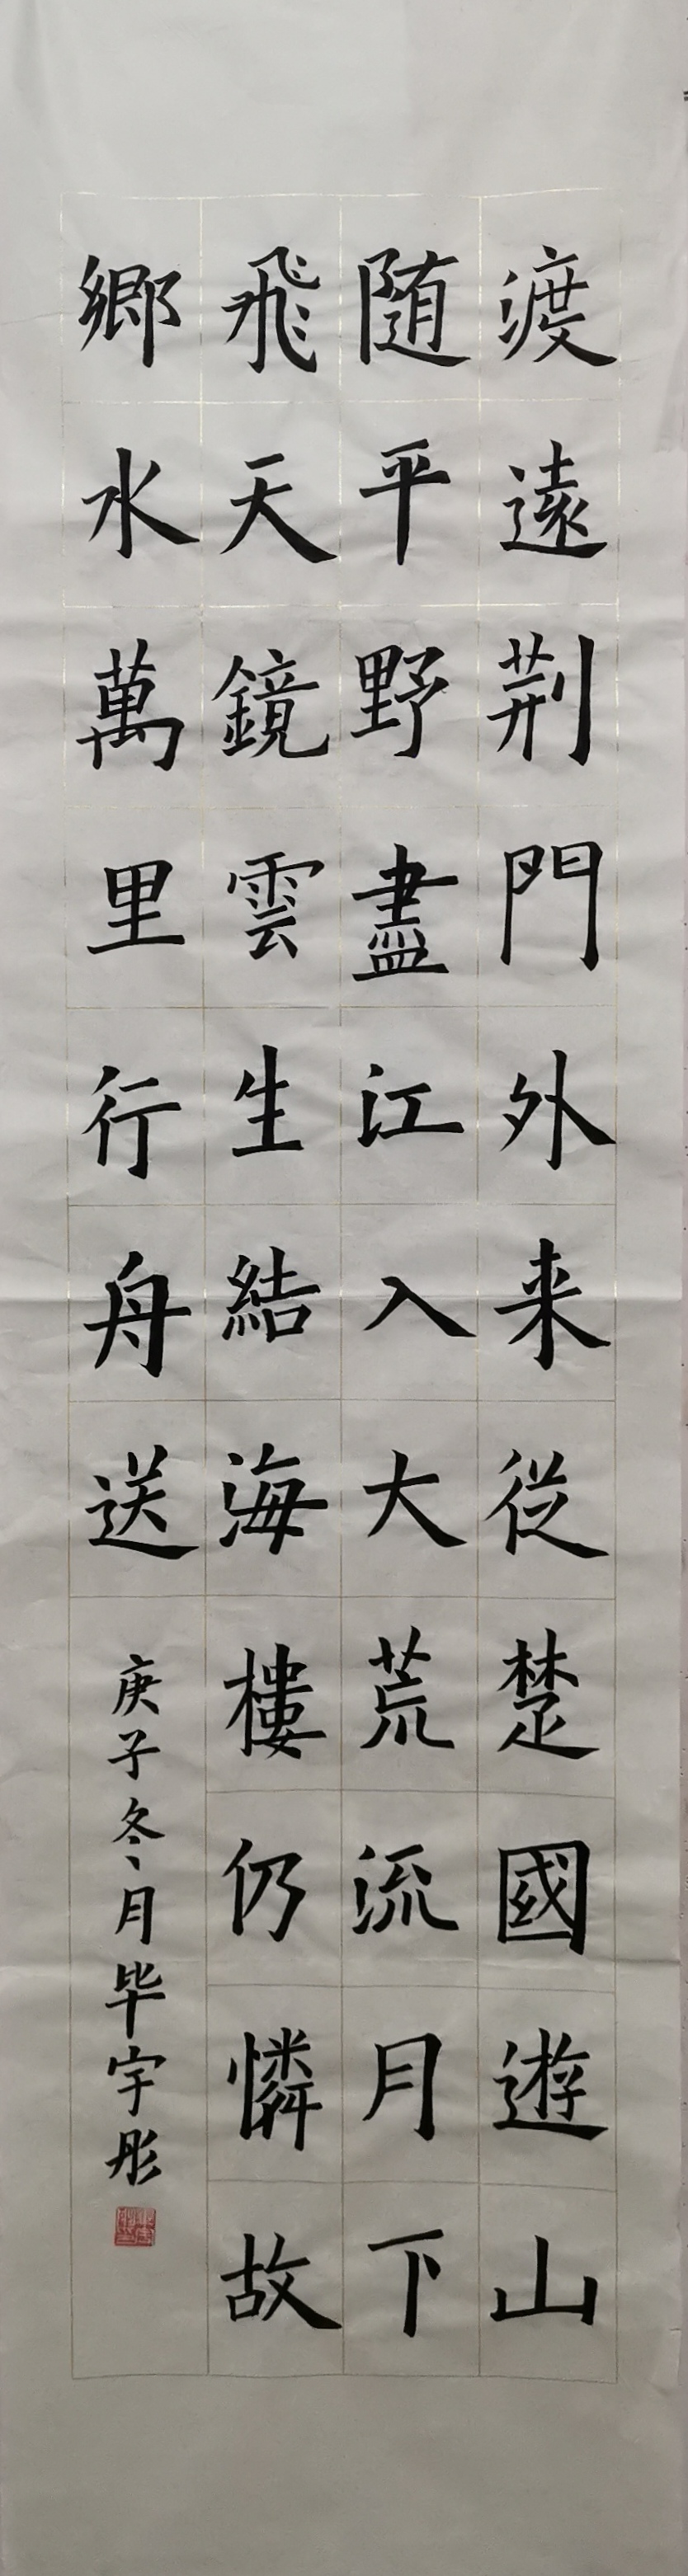 渡遠荆門外来從楚國遊山
随平野盡江入大荒流月下
飛天鏡雲生結海樓仍憐故
鄉水萬里行舟送
庚子冬月毕宇彤